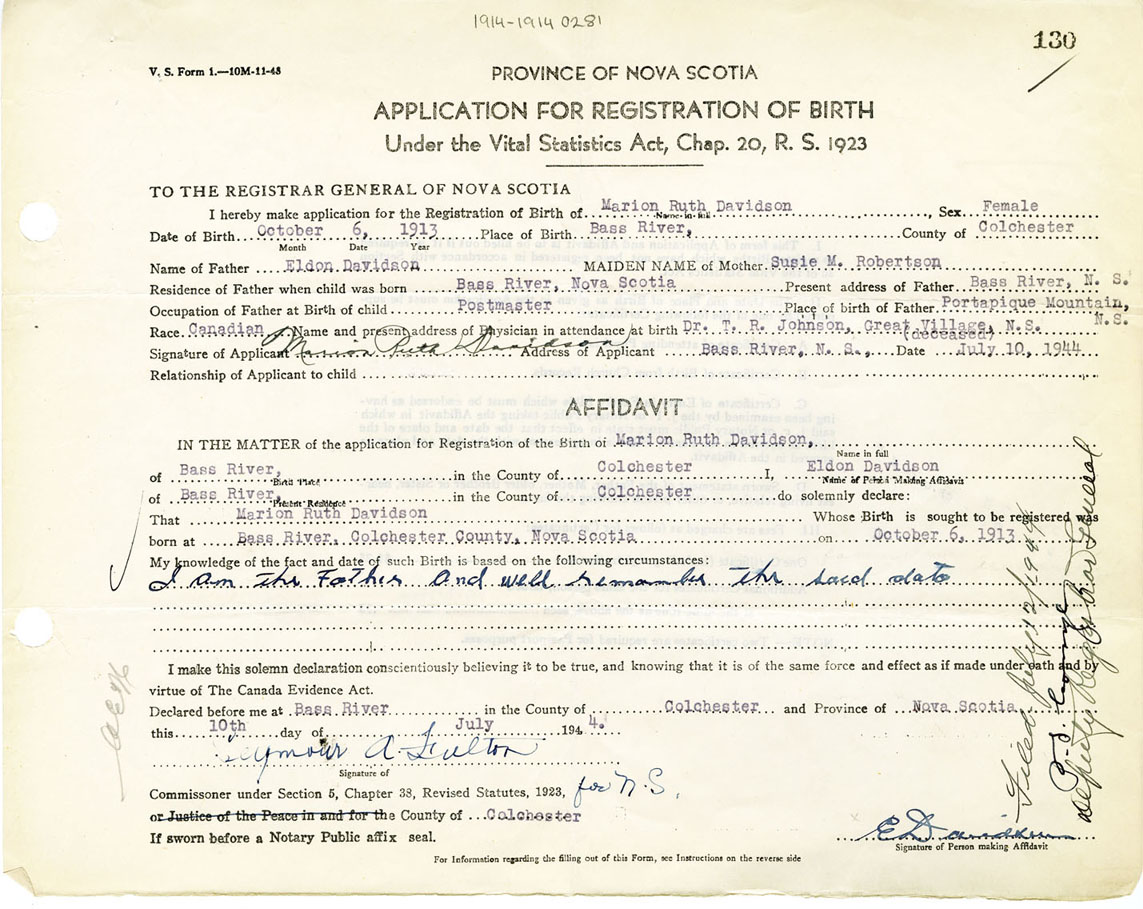 1914-1914 0281
130
V. S. Form 1.—10M-11-43
PROVINCE OF NOVA SCOTIA
APPLICATION FOR REGISTRATION OF BIRTH
Under the Vital Statistics Act, Chap. 20, R. S. 1923
TO THE REGISTRAR GENERAL OF NOVA SCOTIA
I hereby make application for the Registration of Birth of Marion Ruth Davidson, Sex Female
Name in full
Date of Birth October 6, 1913 Place of Birth Bass River, County of Colchester
Month Date Year
Name of Father Eldon Davidson MAIDEN NAME of Mother Susie M. Robertson
Residence of Father when child was born Bass River, Nova Scotia Present address of Father Bass River, N. S.
Occupation of Father at Birth of child Postmaster Place of birth of Father Portapique Mountain, N.S.
Race Canadian Name and present address of Physician in attendance at birth Dr. T. R. Johnson, Great Village, N.S.
(deceased)
Signature of Applicant Marion Ruth Davidson Address of Applicant Bass River, N. S., Date July 10, 1944
Relationship of Applicant to child
AFFIDAVIT
IN THE MATTER of the application for Registration of the Birth of Marion Ruth Davidson,
Name in full
of Bass River, in the County of Colchester I, Eldon Davidson
Birth Place Name of Person Making Affidavit
of Bass River, in the County of Colchester do solemnly declare:
Present Residence
That Marion Ruth Davidson Whose Birth is sought to be registered was
born at Bass River, Colchester County, Nova Scotia on October 6, 1913
My knowledge of the fact and date of such Birth is based on the following circumstances:
I am the Father and well remember the said date
I make this solemn declaration conscientiously believing it to be true, and knowing that it is of the same force and effect as if made under oath and by
virtue of The Canada Evidence Act.
Declared before me at Bass River in the County of Colchester and Province of Nova Scotia
this 10th day of July 1944.
Seymour A. Fulton
Signature of
Commissioner under Section 5, Chapter 38, Revised Statutes, 1923, for N.S.
or Justice of the Peace in and for the County of Colchester
If sworn before a Notary Public affix seal.
E Davidson
Signature of Person making Affidavit
For Information regarding the filling out of this Form, see Instructions on the reverse side
Filed July 12/1944
Deputy Registrar General